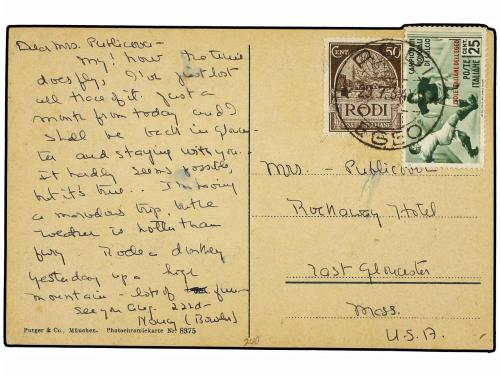 Dear Mrs. Publicover -
My! how the time
does fly, I've just lost
all trace of it. Just a
month from today and I
shall be back in Glouces-
ter and staying with you.
It hardly seems possible,
but it's true. I'm having
a marvelous trip, but the
weather is hotter than
fury. Rode a donkey
yesterday up a high
mountain - lots of fun
See you Aug. 22nd -
Nancy (Bowles)
Purger & Co., München. Photochromiekarte Nr. 8375
CENT 50
RODI
CAMPIONATI MONDIALI DI CALCIO
ISOLE ITALIANE DELL'EGEO
POSTE ITALIANE
CENT. 25
EGEO
Mrs - Publicover
Rockaway Hotel
East Gloucester
Mass.
U.S.A.